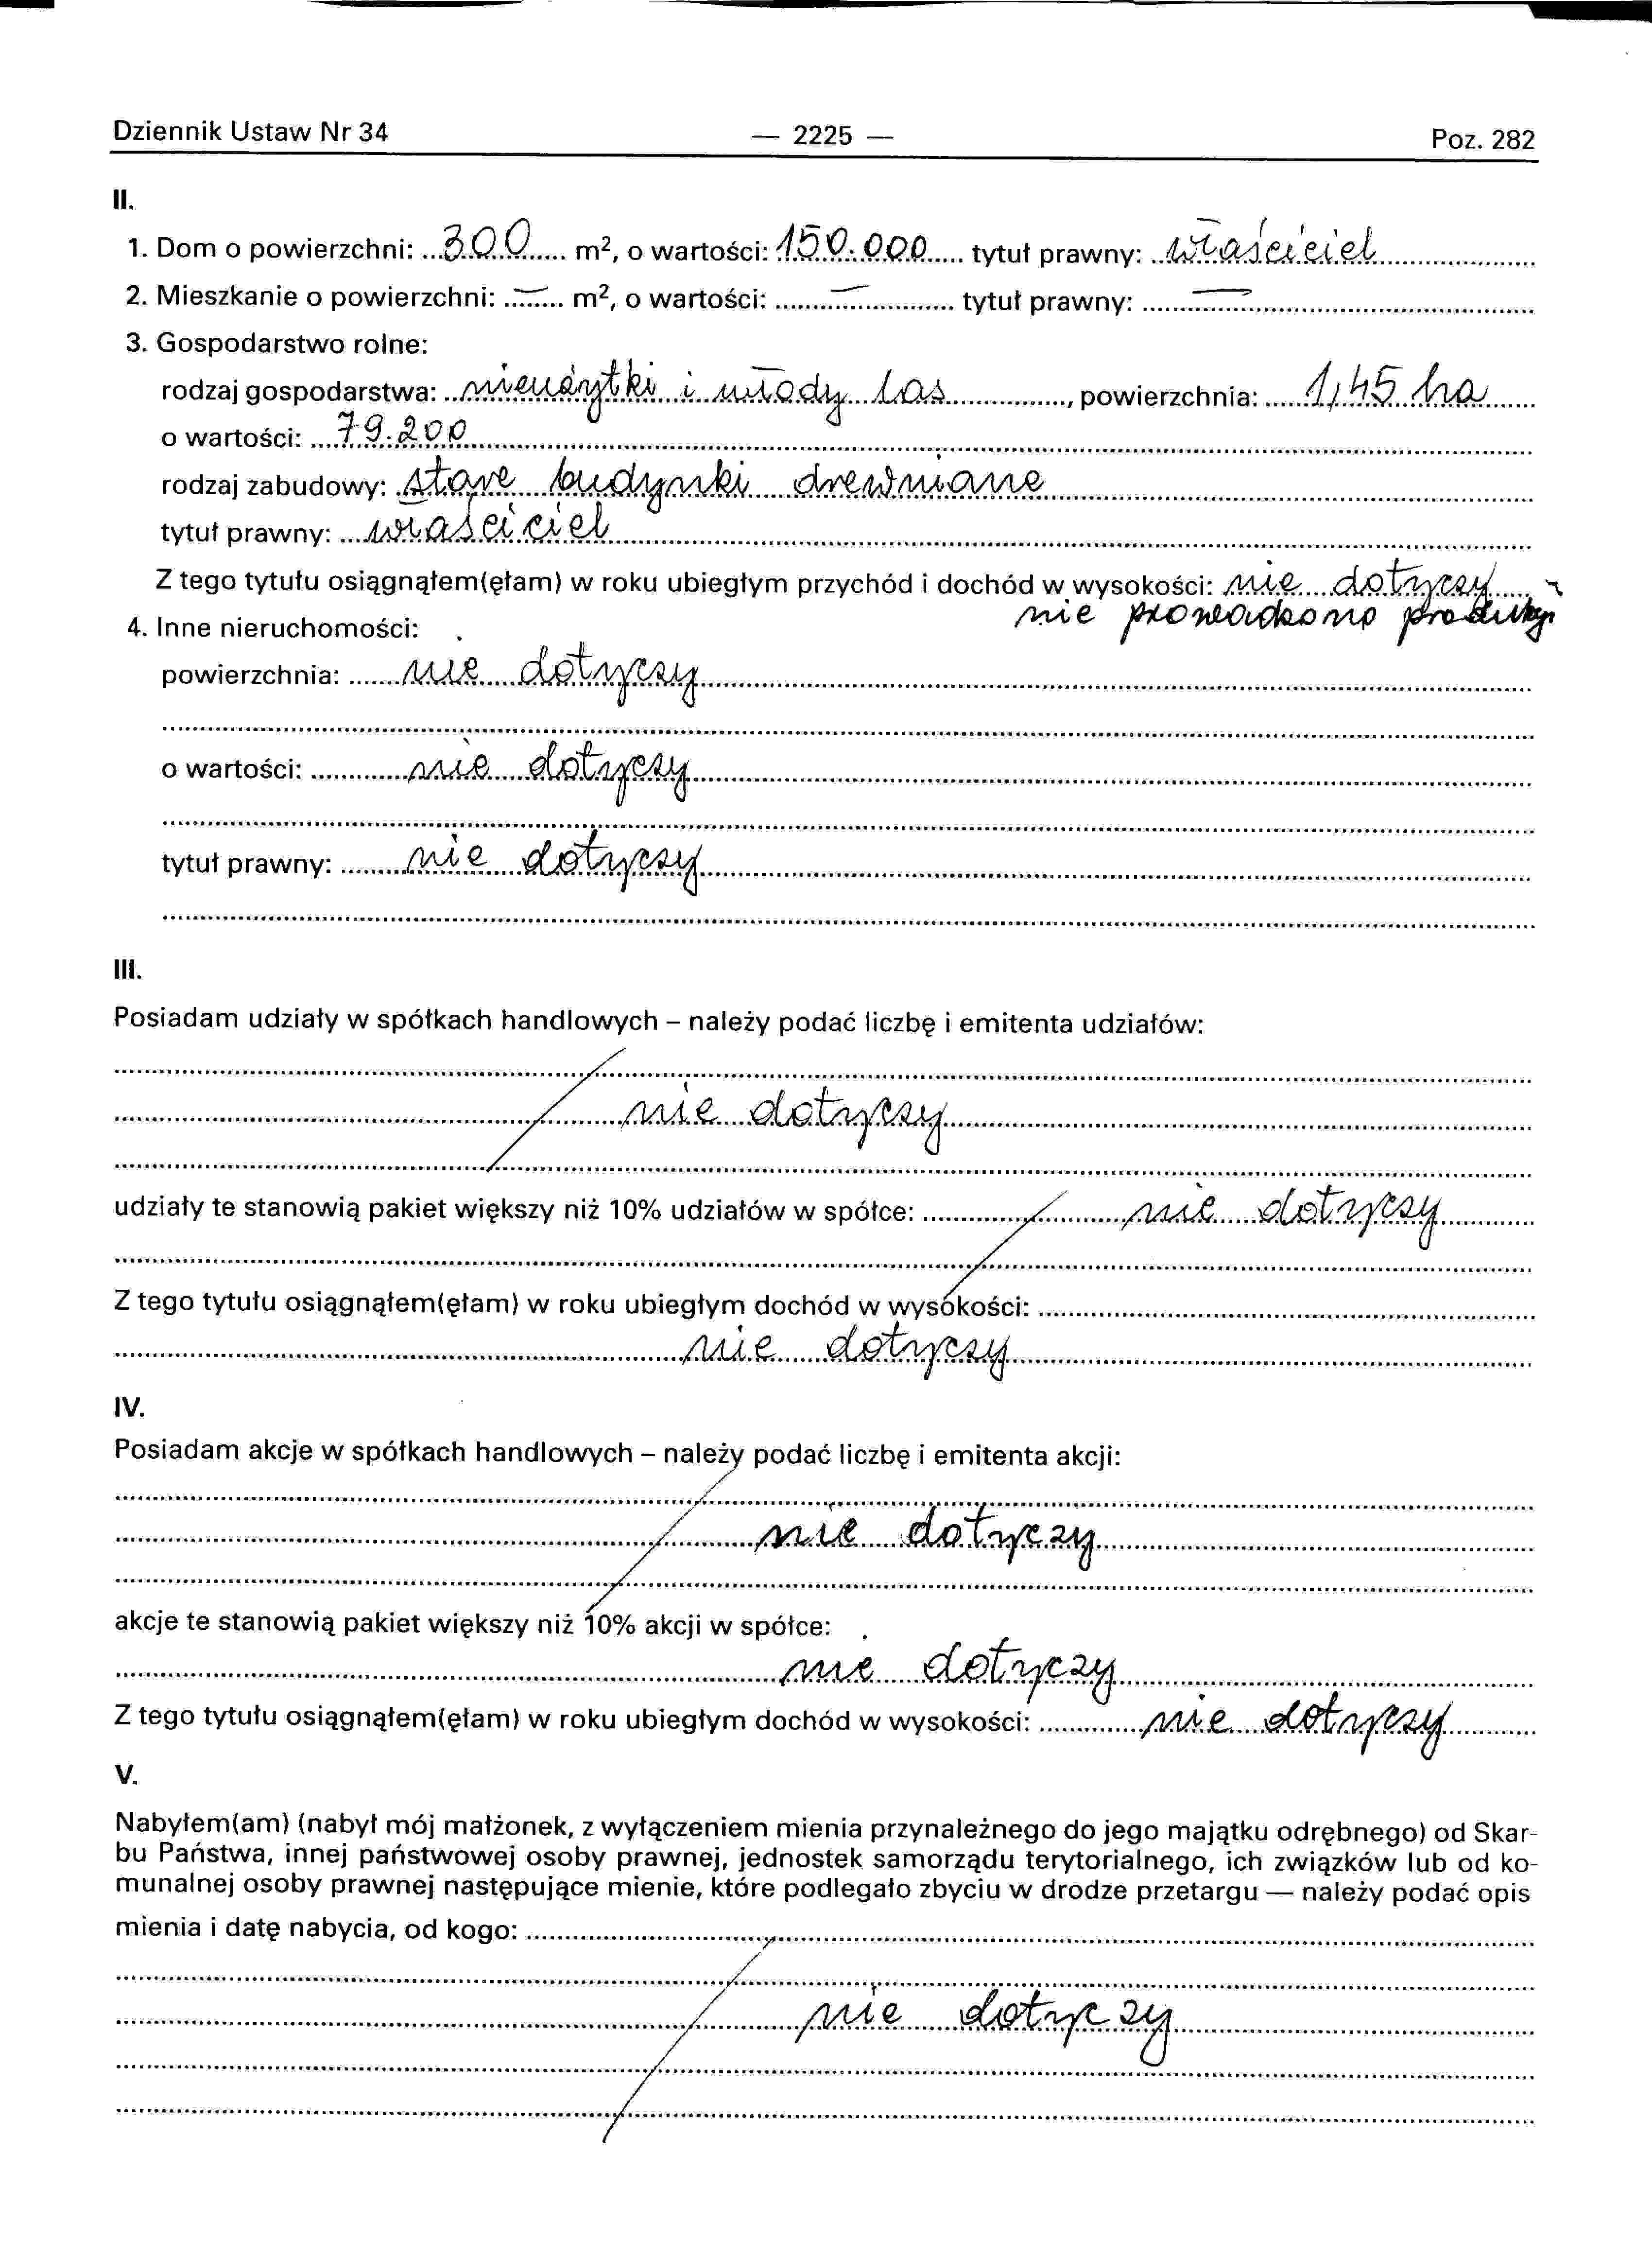 Dziennik Ustaw Nr 34 — 2225 — Poz. 282
II.
1. Dom o powierzchni: 300 m², o wartości: 150.000 tytuł prawny: właściciel
2. Mieszkanie o powierzchni: — m², o wartości: — tytuł prawny: —
3. Gospodarstwo rolne:
rodzaj gospodarstwa: nieużytki i młody las, powierzchnia: 1,45 ha
o wartości: 79.200
rodzaj zabudowy: stare budynki drewniane
tytuł prawny: właściciel
Z tego tytułu osiągnąłem(ęłam) w roku ubiegłym przychód i dochód w wysokości: nie dotyczy
nie prowadzono produkcji
4. Inne nieruchomości:
powierzchnia: nie dotyczy
o wartości: nie dotyczy
tytuł prawny: nie dotyczy
III.
Posiadam udziały w spółkach handlowych – należy podać liczbę i emitenta udziałów:
nie dotyczy
udziały te stanowią pakiet większy niż 10% udziałów w spółce: nie dotyczy
Z tego tytułu osiągnąłem(ęłam) w roku ubiegłym dochód w wysokości:
nie dotyczy
IV.
Posiadam akcje w spółkach handlowych – należy podać liczbę i emitenta akcji:
nie dotyczy
akcje te stanowią pakiet większy niż 10% akcji w spółce:
nie dotyczy
Z tego tytułu osiągnąłem(ęłam) w roku ubiegłym dochód w wysokości: nie dotyczy
V.
Nabyłem(am) (nabył mój małżonek, z wyłączeniem mienia przynależnego do jego majątku odrębnego) od Skar-
bu Państwa, innej państwowej osoby prawnej, jednostek samorządu terytorialnego, ich związków lub od ko-
munalnej osoby prawnej następujące mienie, które podlegało zbyciu w drodze przetargu — należy podać opis
mienia i datę nabycia, od kogo:
nie dotyczy